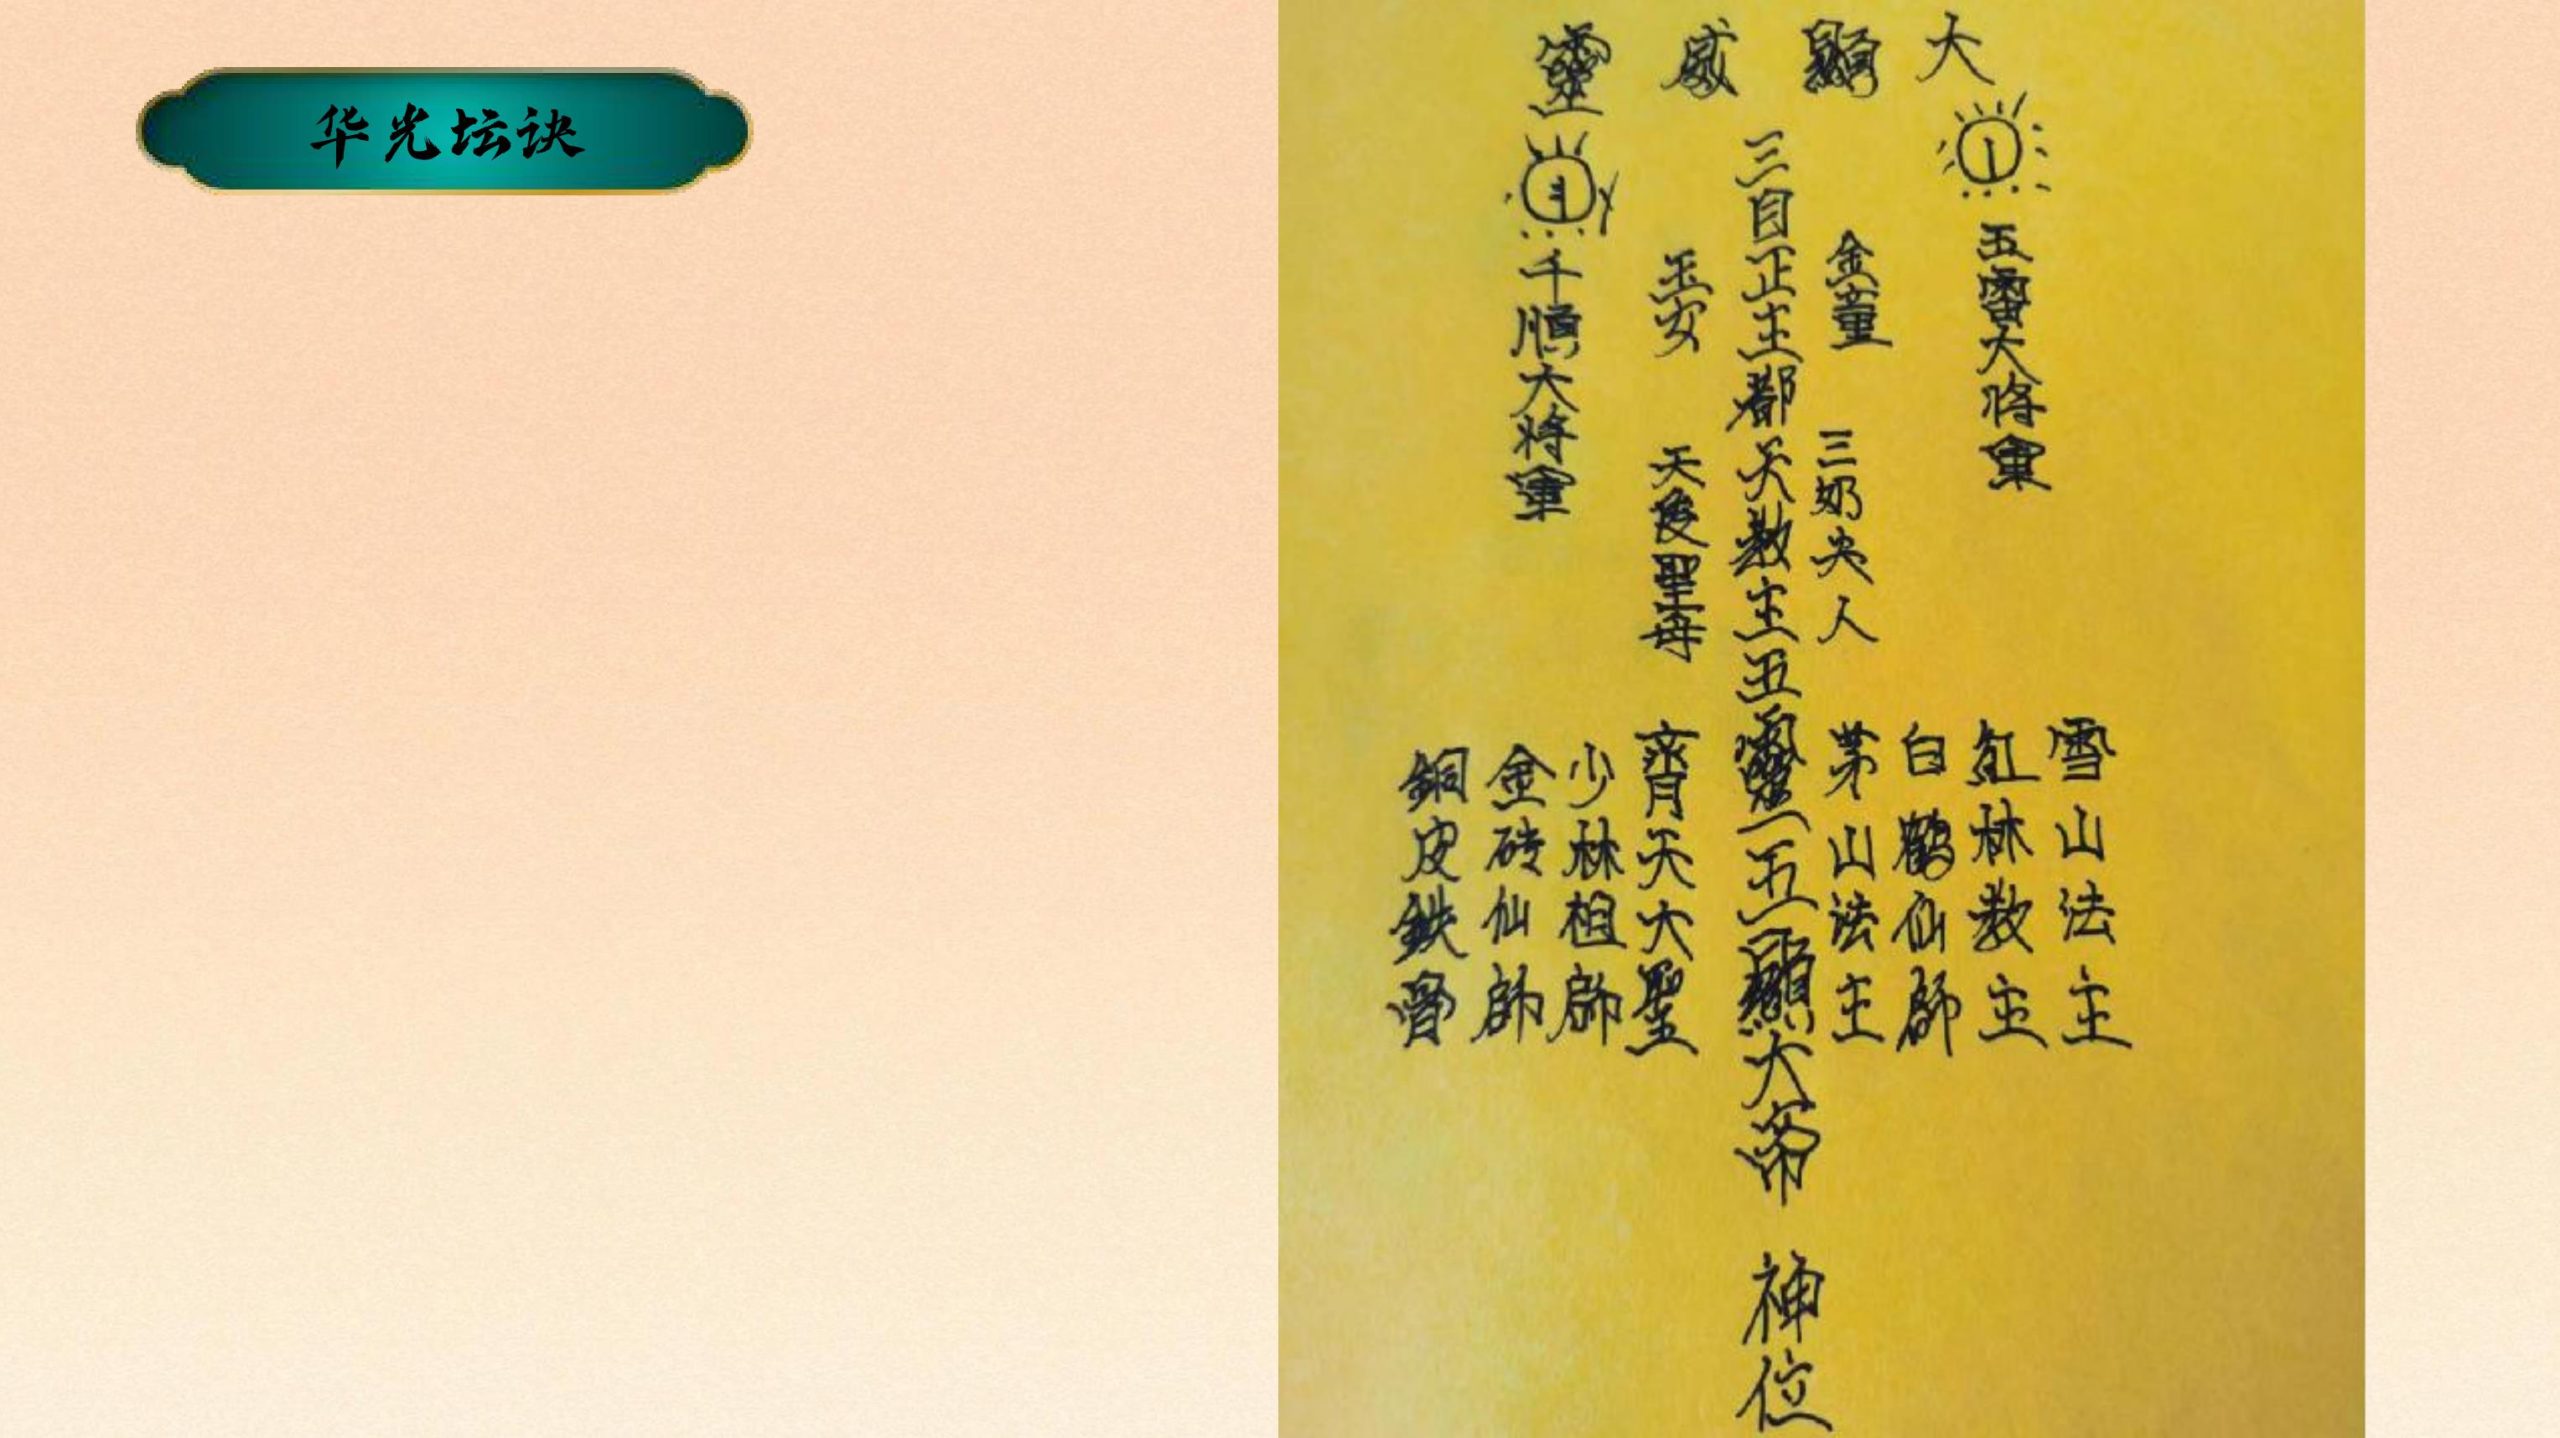 华光坛诀
大顯威靈
五雷大將軍
雪山法主
紅林教主
白鶴仙師
金童
三奶夫人
茅山法主
三目正主都天教主五靈五顯大帝 神位
玉女
天後聖母
齊天大聖
少林祖師
金磚仙師
千順大將軍
銅皮鉄骨